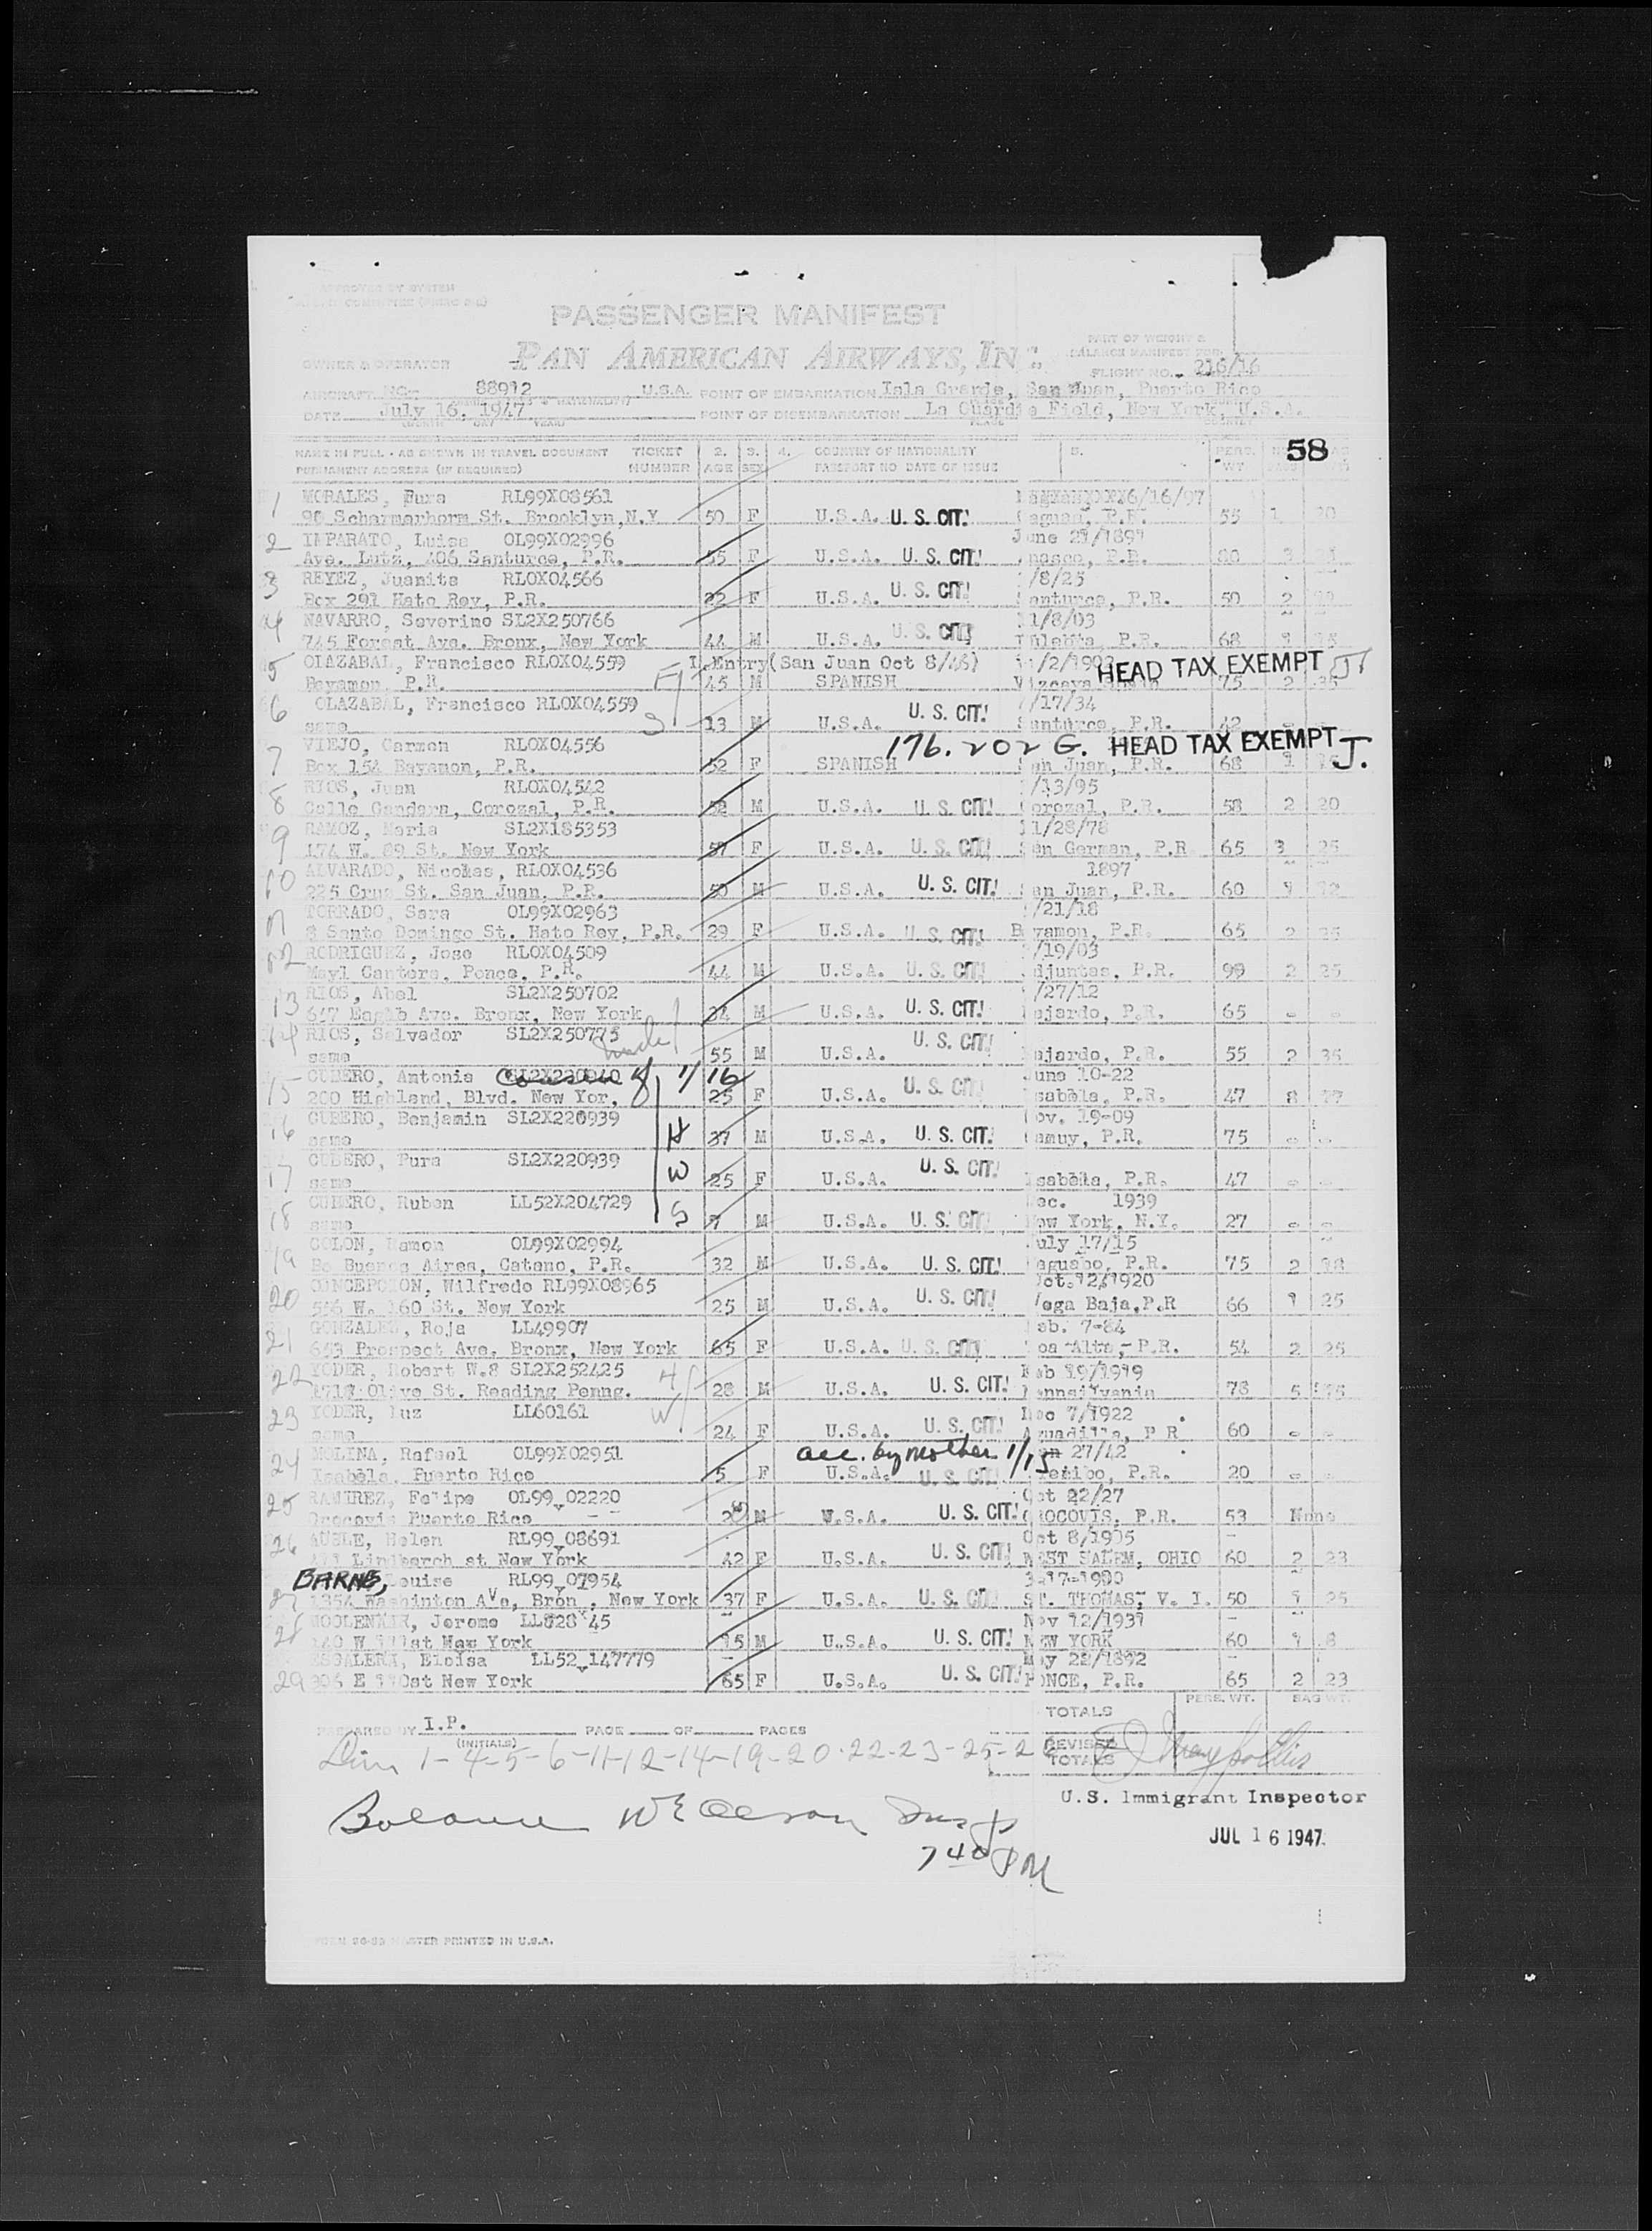 APPROVED BY SYSTEM
PASSENGER MANIFEST
OWNER & OPERATOR PAN AMERICAN AIRWAYS, INC.
PART OF WEIGHT &
BALANCE MANIFEST FOR
FLIGHT NO. 216/16
AIRCRAFT NC- 88912 U.S.A. POINT OF EMBARKATION Isla Grande, San Juan, Puerto Rico
DATE July 16, 1947 POINT OF DISEMBARKATION La Guardia Field, New York, U.S.A.
58
NAME IN FULL - AS SHOWN IN TRAVEL DOCUMENT TICKET 2. 3. 4. COUNTRY OF NATIONALITY 5. PERS.
PERMANENT ADDRESS (IF REQUIRED) NUMBER AGE SEX PASSPORT NO DATE OF ISSUE WT
1 MORALES, Pura RL99X08561 6/16/97
90 Schermerhorn St. Brooklyn, N.Y 50 F U.S.A. U. S. CIT! aguas, P.R. 55 1 20
2 IMPARATO, Luisa OL99X02996 June 21/1891
Ave. Lutz, 406 Santurce, P.R. 55 F U.S.A. U. S. CIT! nasco, P.R. 80 3
3 REYEZ, Juanita RLOX04566 /8/25
Box 291 Hato Rey, P.R. 22 F U.S.A. U. S. CIT! anturce, P.R. 50 2
4 NAVARRO, Severino SL2X250766 11/8/03
745 Forest Ave. Bronx, New York 44 M U.S.A. U. S. CIT! P.R. 68
5 OLAZABAL, Francisco RLOX04559 L.Entry(San Juan Oct 8/46) /2/1902 HEAD TAX EXEMPT J
Bayamon, P.R. F 45 M SPANISH Vizcaya 75 2 35
6 OLAZABAL, Francisco RLOX04559 /17/34
same S 13 M U.S.A. U. S. CIT! Santurce, P.R. 42 - -
7 VIEJO, Carmen RLOX04556 176.202 G. HEAD TAX EXEMPT J.
Box 154 Bayamon, P.R. 52 F SPANISH San Juan, P.R. 68
8 RIOS, Juan RLOX04542 /13/95
Calle Gandara, Corozal, P.R. 52 M U.S.A. U. S. CIT! Corozal, P.R. 58 2 20
9 RAMOZ, Maria SL2X185353 11/28/78
174 W. 89 St. New York 57 F U.S.A. U. S. CIT! San German, P.R 65 3 25
10 ALVARADO, Nicolas, RLOX04536 1897
225 Cruz St. San Juan, P.R. 50 M U.S.A. U. S. CIT! San Juan, P.R. 60 1 12
11 TORRADO, Sara OL99X02963 /21/18
8 Santo Domingo St. Hato Rey, P.R. 29 F U.S.A. U. S. CIT! Bayamon, P.R. 65 2 35
12 RODRIGUEZ, Jose RLOX04509 /19/03
Mayl Cantera, Ponce, P.R. 44 M U.S.A. U. S. CIT! djuntas, P.R. 99 2 25
13 RIOS, Abel SL2X250702 /27/12
647 Eagle Ave. Bronx, New York 34 M U.S.A. U. S. CIT! ajardo, P.R. 65 - -
14 RIOS, Salvador SL2X250775 Uncle
same 55 M U.S.A. U. S. CIT! ajardo, P.R. 55 2 35
15 CUBERO, Antonia SL2X220940 Cousin of 1/16 June 10-22
200 Highland, Blvd. New Yor, 25 F U.S.A. U. S. CIT! sabela, P.R. 47 8 77
16 CUBERO, Benjamin SL2X220939 ov. 19-09
same H 37 M U.S.A. U. S. CIT! amuy, P.R. 75 - -
17 CUBERO, Pura SL2X220939
same W 25 F U.S.A. U. S. CIT! sabela, P.R. 47 - -
18 CUBERO, Ruben LL52X204729 ec. 1939
same S 7 M U.S.A. U. S. CIT! ew York, N.Y. 27 - -
19 COLON, Ramon OL99X02994 uly 17/15
Bo Buenos Aires, Catano, P.R. 32 M U.S.A. U. S. CIT! aguabo, P.R. 75 2 18
20 CONCEPCION, Wilfredo RL99X08965 Oct.12/1920
556 W. 160 St. New York 25 M U.S.A. U. S. CIT! Vega Baja, P.R 66 1 25
21 GONZALEZ, Roja LL49907 eb. 7-84
653 Prospect Ave, Bronx, New York 65 F U.S.A. U. S. CIT! oa Alta, P.R. 54 2 25
22 YODER, Robert W.8 SL2X252425 Feb 19/1919
1718 Olive St. Reading Penng. H 28 M U.S.A. U. S. CIT! Pennsilvania 78 5
23 YODER, Luz LL60161 Dec 7/1922
same W 24 F U.S.A. U. S. CIT! Aguadilla, P R 60 - -
24 MOLINA, Rafael OL99X02951 acc. by Mother 1/15 27/42
Isabela, Puerto Rico 5 F U.S.A. U. S. CIT! recibo, P.R. 20 - -
25 RAMIREZ, Felipe OL99 02220 Oct 22/27
Orocovis Puerto Rico M U.S.A. U. S. CIT! OROCOVIS, P.R. 53 None
26 AUBLE, Helen RL99 08691 Oct 8/1905
st New York 42 F U.S.A. U. S. CIT! WEST SALEM, OHIO 60 2 23
27 BARNES, Louise RL99 07954 3-17-1900
1354 Washinton Ave, Bron , New York 37 F U.S.A. U. S. CIT! ST. THOMAS, V. I. 50 1 25
28 Jerome LL828 45 Nov 12/1931
st New York 15 M U.S.A. U. S. CIT! NEW YORK 60 1 8
29 ESCALERA, Eloisa LL52 147779 May 22/1892
E 110st New York 65 F U.S.A. U. S. CIT! PONCE, P.R. 65 2 23
TOTALS PERS. WT. BAG WT.
PREPARED BY I.P. PAGE OF PAGES
(INITIALS)
REVISED
TOTALS
1-4-5-6-11-12-14-19-20-22-23-25-2
U.S. Immigrant Inspector
Balance Insp
JUL 16 1947
7 40 PM
PRINTED IN U.S.A.